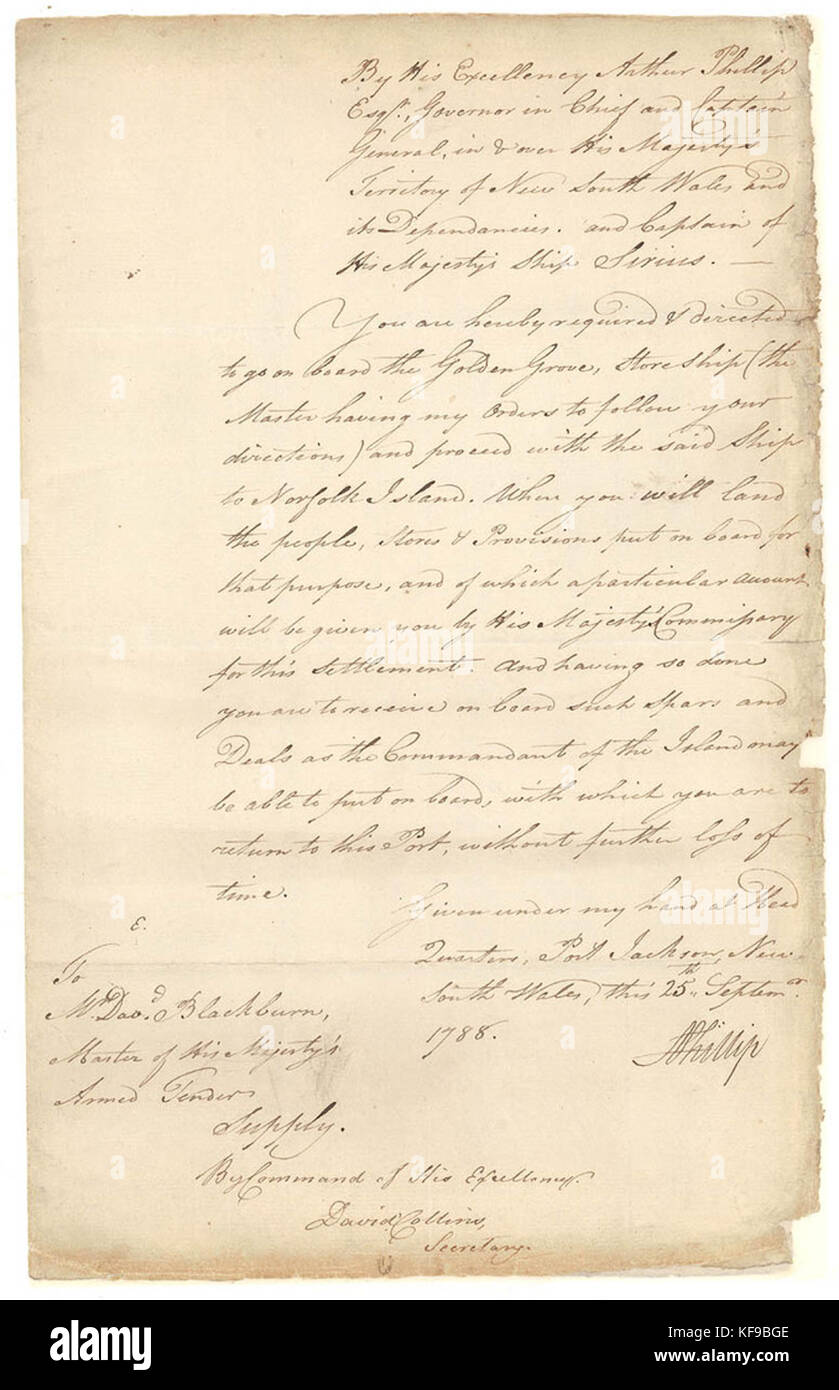 By His Excellency Arthur Phillip
Esqr., Governor in Chief and Captain
General, in & over His Majesty's
Territory of New South Wales and
its Dependancies. and Captain of
His Majesty's Ship Sirius. —
You are hereby required & directed
to go on board the Golden Grove, Store ship (the
Master having my Orders to follow your
directions) and proceed with the said Ship
to Norfolk Island. When you will land
the people, Stores & Provisions put on board for
that purpose, and of which a particular account
will be given you by His Majesty's Commissary
for this Settlement. And having so done
you are to receive on board such Spars and
Deals as the Commandant of the Island may
be able to put on board, with which you are to
return to this Port, without further loss of
time.
Given under my hand at Head
Quarters, Port Jackson, New
South Wales, this 25th Septemr.
1788.
APhillip
E.
To
Mr. Davd. Blackburn,
Master of His Majesty's
Armed Tender
Supply.
By Command of His Excellency.
David Collins,
Secretary.
alamy
Image ID: KF9BGE
www.alamy.com